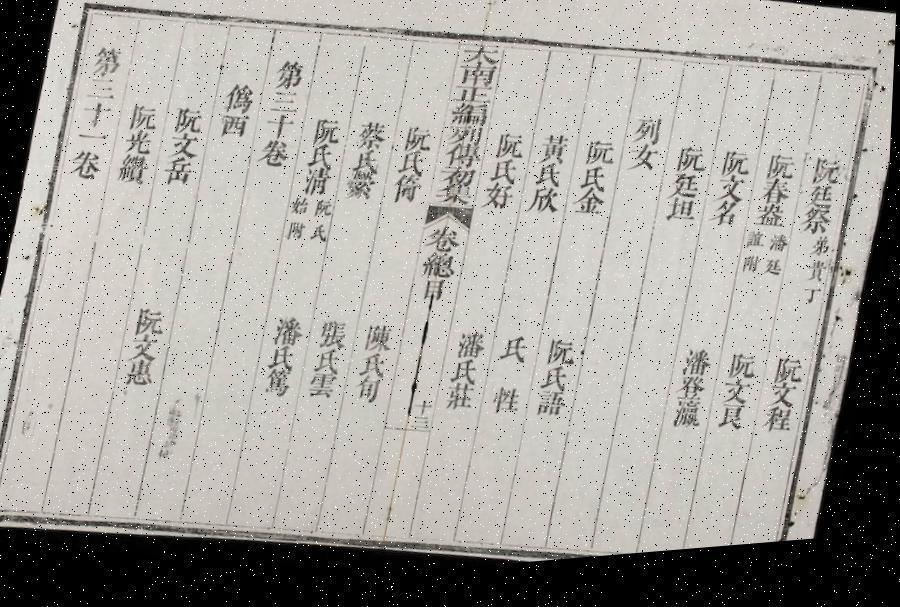 阮廷祭 弟貴丁
阮春崟 潘廷誼附 阮文程
阮文名 阮文艮
阮廷坦 潘登瀛
列女
阮氏金
黃氏欣 阮氏語
阮氏好 氏性
潘氏莊
大南正編列傳初集 卷總目 十三
阮氏 陳氏旬
蔡氏 張氏雲
阮氏清 阮氏始附 潘氏篤
第三十卷
僞西
阮文岳
阮光纘 阮文惠
第三十一卷